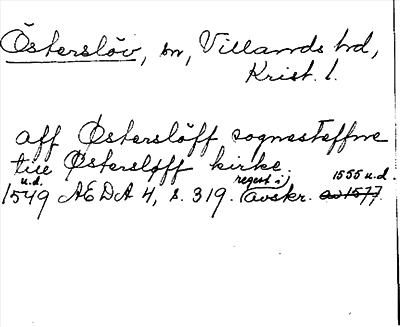 Österslöv, sn, Villands hd,
Krist. l.
aff Østerslöff sognesteffne
till Østersløff kirke.
u.d. regest i 1555 u.d.
1549 AEDA 4, s. 319. (avskr. av 1577).